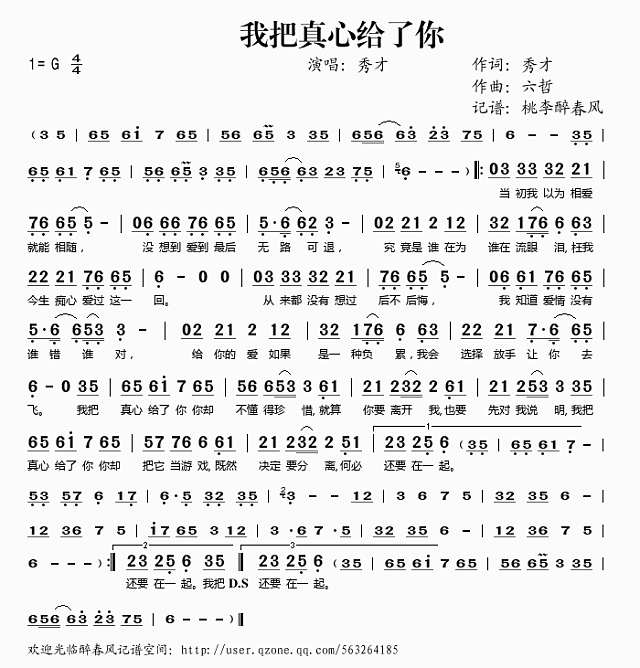 我把真心给了你
1= G 4/4 演唱：秀才 作词：秀才
作曲：六哲
记谱：桃李醉春风
（3 5 | 65 6i 7 65 | 56 65 3 35 | 656 63 23 75 | 6 - - 35 |
65 61 7 65 | 56 65 3 35 | 656 63 23 75 | 6 - - - ）‖: 03 33 32 21 |
当 初我 以为 相爱
76 65 5 - | 06 66 76 65 | 5·6 62 3 - | 02 21 2 12 | 32 176 6 63 |
就能 相随， 没 想到 爱到 最后 无 路 可 退， 究 竟是 谁 在为 谁在 流眼 泪,枉我
22 21 76 65 | 6 - - 0 | 03 33 32 23 | 76 65 5 - | 06 61 76 65 |
今生 痴心 爱过 这一 回。 从 来都 没有 想过 后不 后悔， 我 知道 爱情 没有
5·6 653 3 - | 02 21 2 12 | 32 176 6 63 | 22 21 7·6 65 |
谁 错 谁 对， 给 你的 爱 如果 是一 种负 累,我会 选择 放手 让 你 去
6 - 0 35 | 65 61 7 65 | 56 653 3 61 | 21 232 2 61 | 21 253 3 35 |
飞。 我把 真心 给了 你 你却 不懂 得珍 惜,就算 你要 离开 我,也要 先对 我说 明,我把
65 6i 7 65 | 57 76 6 61 | 21 232 2 51 | 1 23 25 6 （35 | 65 61 7 - |
真心 给了 你 你却 把它 当游 戏,既然 决定 要分 离,何必 还要 在一 起。
53 57 6 17 | 6·5 32 35 | 3 - - | 12 3 6 75 | 32 35 6 - |
12 36 7 5 | i7 65 3 12 | 3 ·6 7·5 | 32 35 6 - | 12 36 7 5 |
6 - - - ）:‖ 2 23 25 6 35 ‖ 3 23 25 6 （35 | 65 61 7 65 | 56 65 3 35 |
还要 在一 起。我把 D.S 还要 在一 起。
656 63 23 75 | 6 - - - ）‖
欢迎光临醉春风记谱空间：http://user.qzone.qq.com/563264185